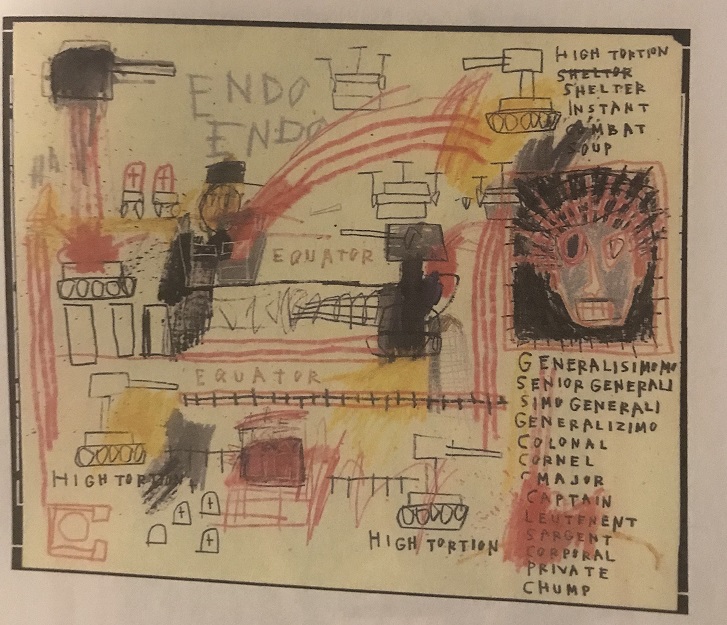 ENDO
ENDO
HIGH TORTION
SHELTOR
SHELTER
INSTANT
COMBAT
SOUP
EQUATOR
EQUATOR
GENERALISIMOMO
SENIOR GENERALI
SIMO GENERALI
GENERALIZIMO
COLONAL
CORNEL
MAJOR
CAPTAIN
LEUTENENT
SARGENT
CORPORAL
PRIVATE
CHUMP
HIGH TORTION
HIGH TORTION